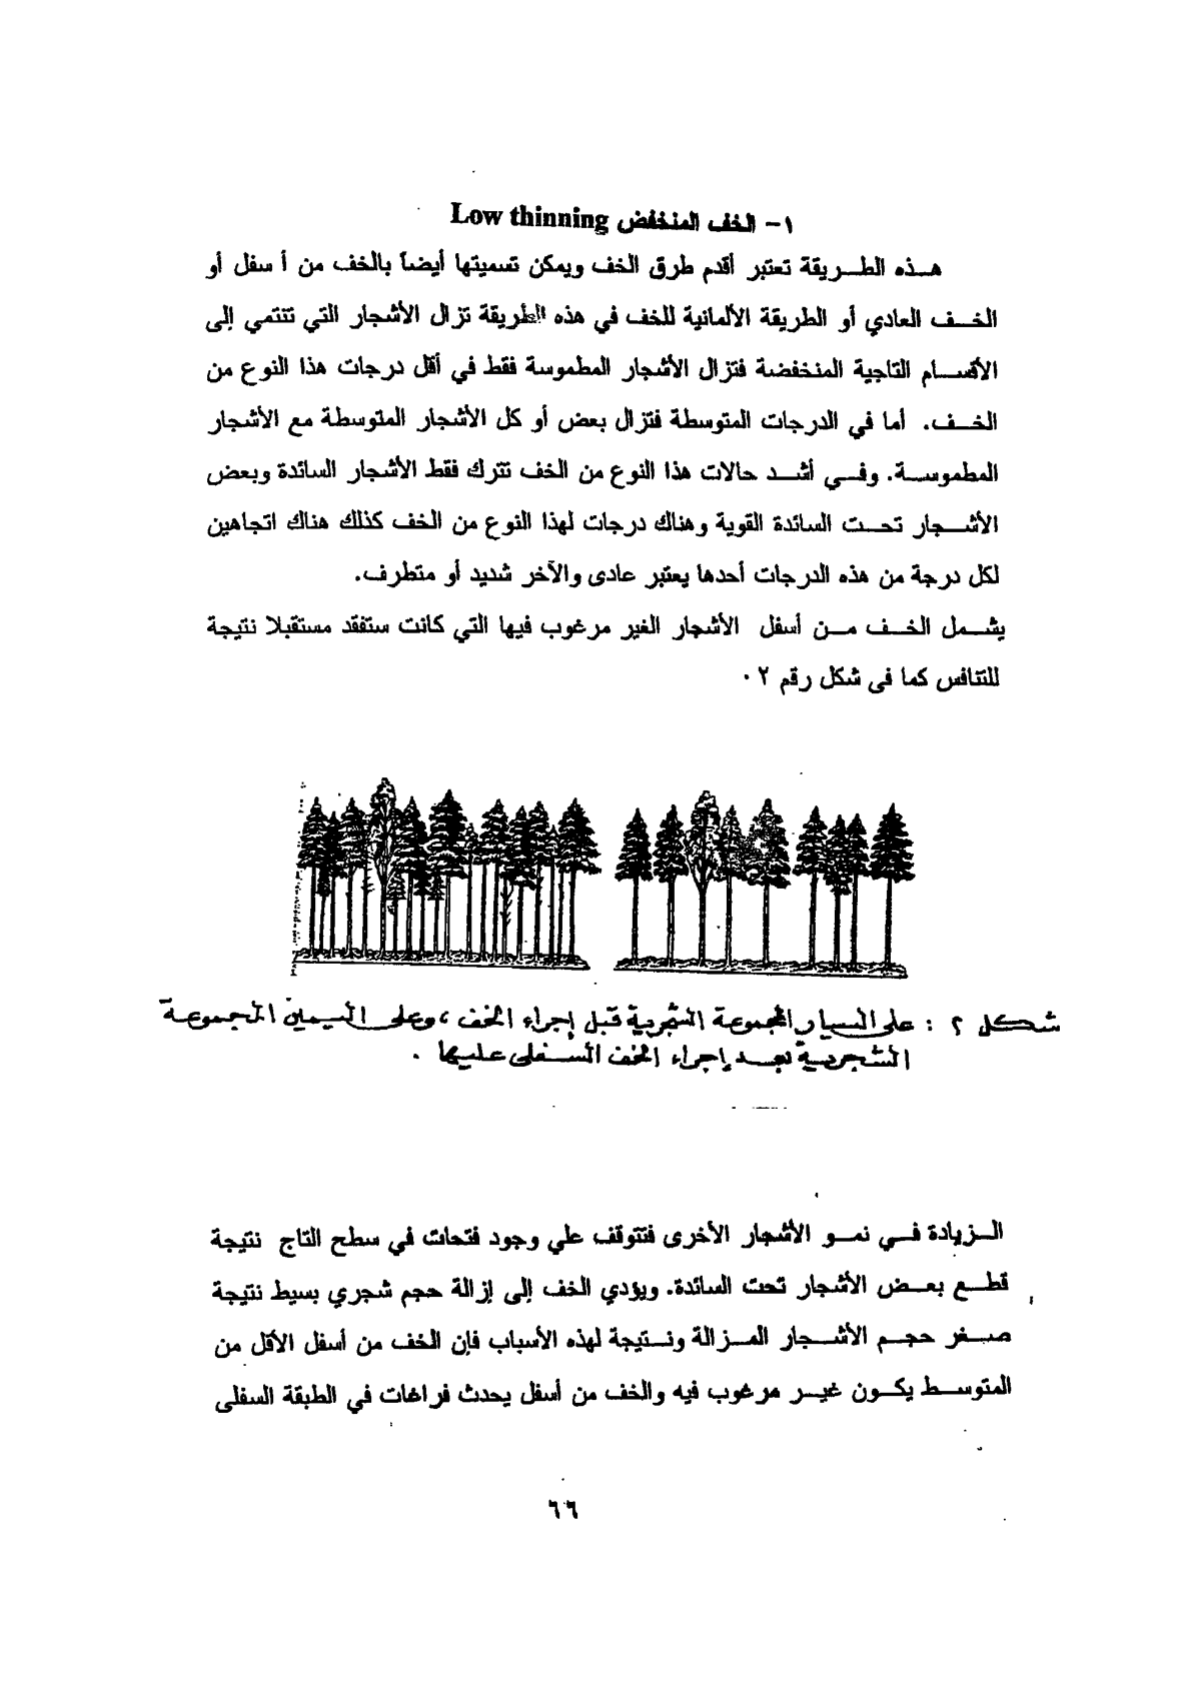 ١- الخف المنخفض Low thinning
هذه الطريقة تعتبر أقدم طرق الخف ويمكن تسميتها أيضاً بالخف من أ سفل أو
الخف العادي أو الطريقة الألمانية للخف في هذه الطريقة تزال الأشجار التي تنتمي إلى
الأقسام التاجية المنخفضة فتزال الأشجار المطموسة فقط في أقل درجات هذا النوع من
الخف. أما في الدرجات المتوسطة فتزال بعض أو كل الأشجار المتوسطة مع الأشجار
المطموسة. وفي أشد حالات هذا النوع من الخف تترك فقط الأشجار السائدة وبعض
الأشجار تحت السائدة القوية وهناك درجات لهذا النوع من الخف كذلك هناك اتجاهين
لكل درجة من هذه الدرجات أحدها يعتبر عادى والآخر شديد أو متطرف.
يشمل الخف من أسفل الأشجار الغير مرغوب فيها التي كانت ستفقد مستقبلا نتيجة
للتنافس كما فى شكل رقم ٢ ٠
شكل ٢ : على اليسار المجموعة الشجرية قبل إجراء الخف ، وعلى اليمين المجموعة
الشجرية بعد إجراء الخف السفلى عليها .
الزيادة في نمو الأشجار الأخرى فتتوقف علي وجود فتحات في سطح التاج نتيجة
قطع بعض الأشجار تحت السائدة. ويؤدي الخف إلى إزالة حجم شجري بسيط نتيجة
صغر حجم الأشجار المزالة ونتيجة لهذه الأسباب فإن الخف من أسفل الأقل من
المتوسط يكون غير مرغوب فيه والخف من أسفل يحدث فراغات في الطبقة السفلى
٦٦